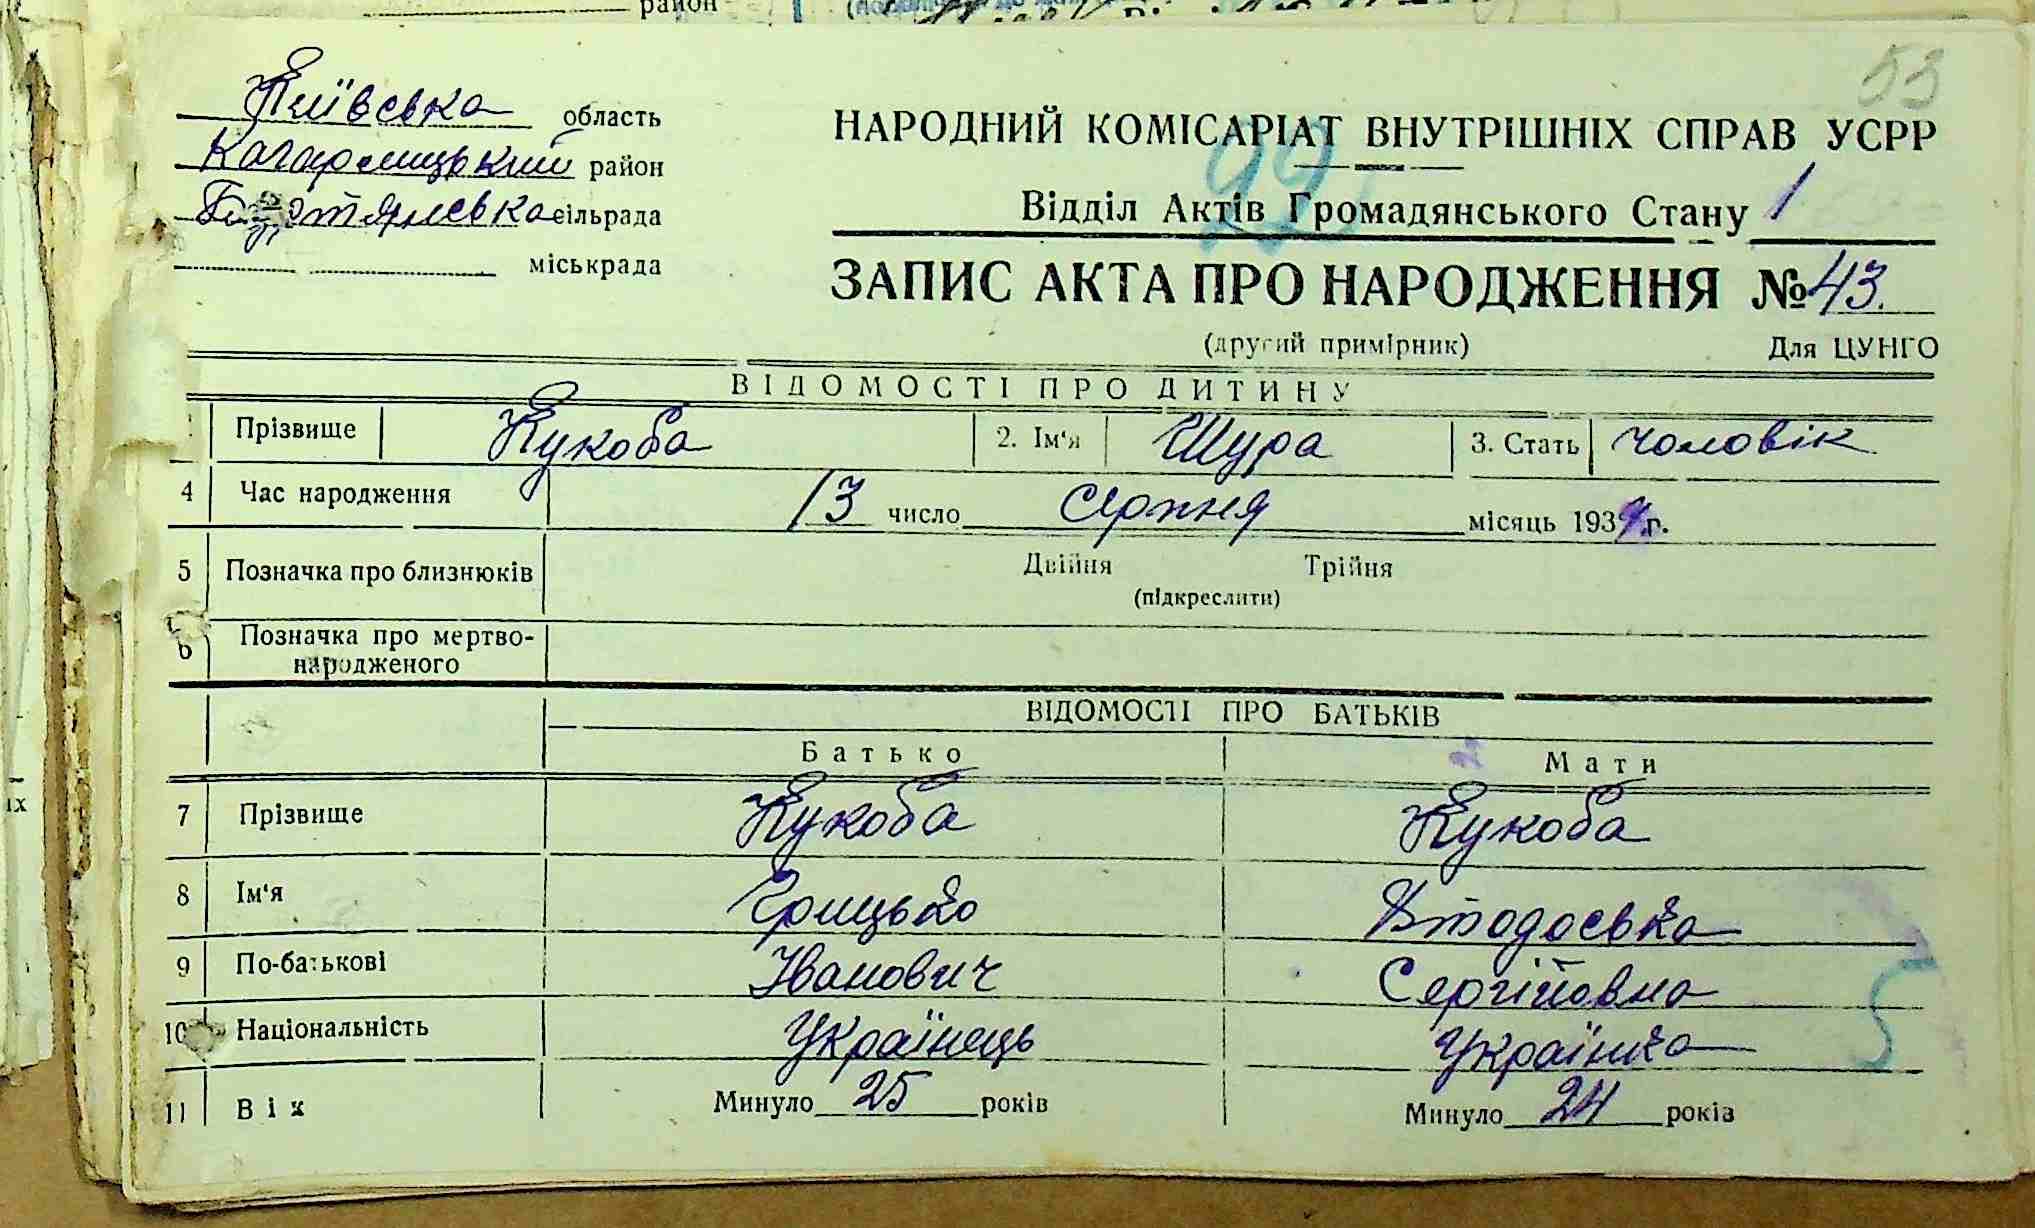 район
53
Київська область
Кагарлицький район
сільрада
міськрада
НАРОДНИЙ КОМІСАРІАТ ВНУТРІШНІХ СПРАВ УСРР
Відділ Актів Громадянського Стану 1
ЗАПИС АКТА ПРО НАРОДЖЕННЯ № 43.
(другий примірник) Для ЦУНГО
ВІДОМОСТІ ПРО ДИТИНУ
Прізвище Кукоба 2. Ім'я Шура 3. Стать чоловік
4 Час народження 13 число Серпня місяць 193 г.
5 Позначка про близнюків Двійня Трійня
(підкреслити)
6 Позначка про мертво-
народженого
ВІДОМОСТІ ПРО БАТЬКІВ
Батько Мати
7 Прізвище Кукоба Кукоба
8 Ім'я Грицько Втодоська
9 По-батькові Іванович Сергіївна
10 Національність Українець Українка
11 Вік Минуло 25 років Минуло 24 років
їх